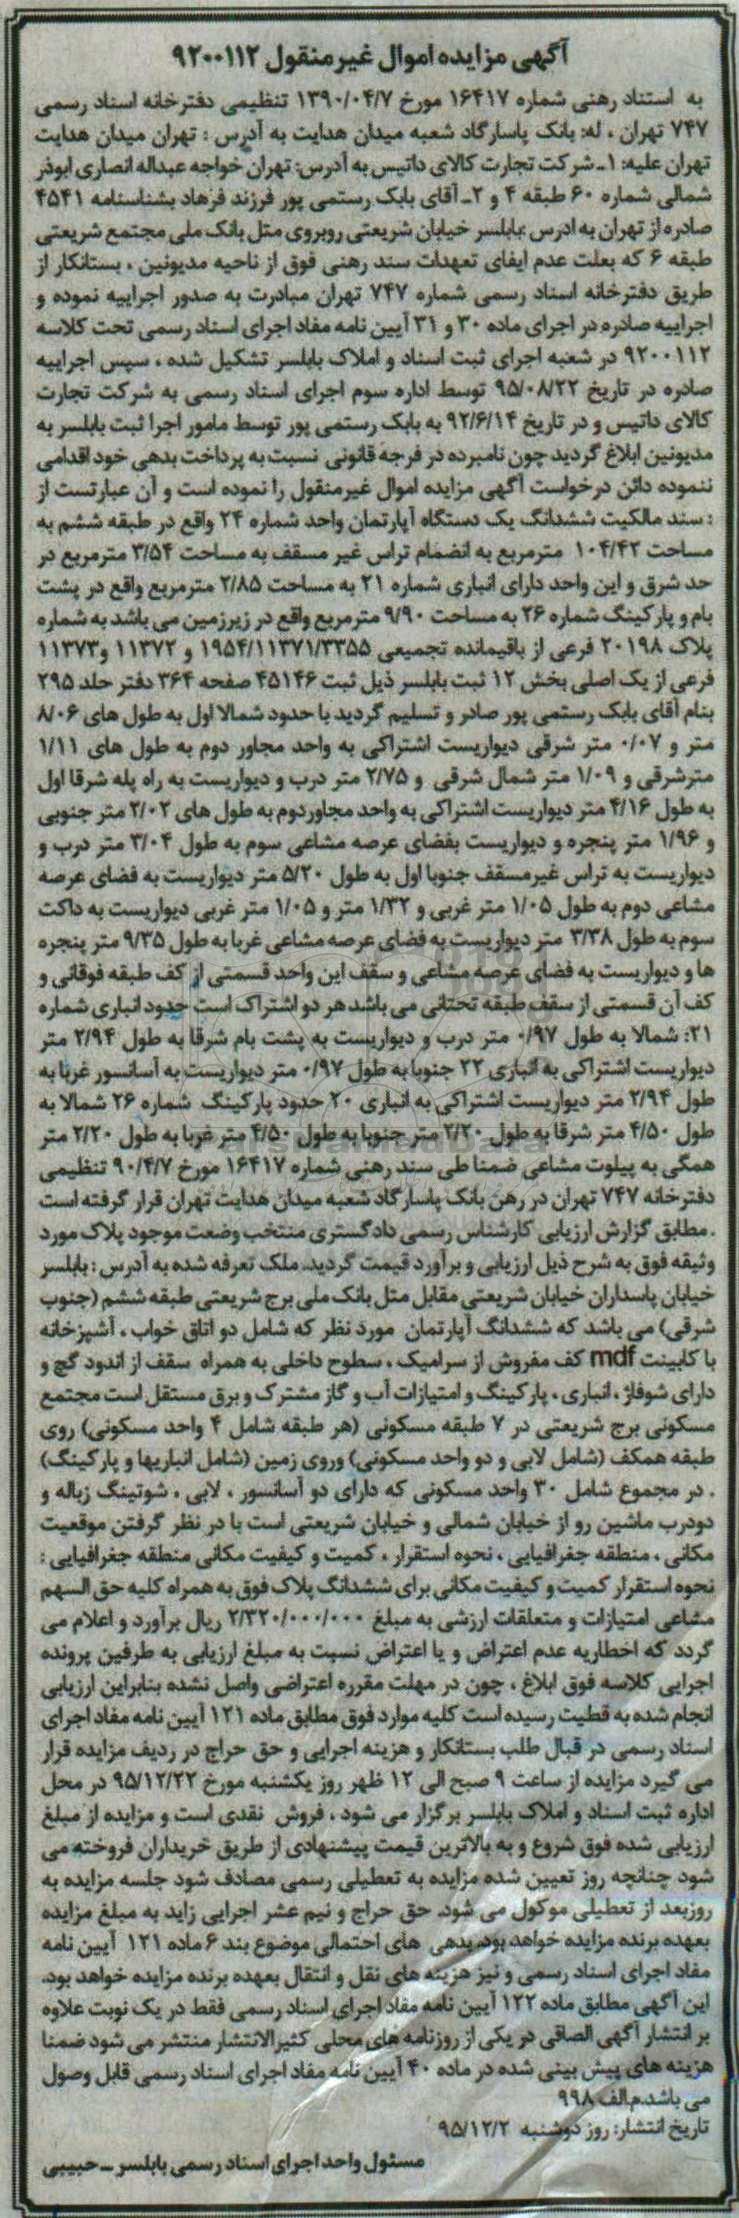 آگهی مزایده اموال غیرمنقول ۹۲۰۰۱۱۲
به استناد رهنی شماره ۱۶۴۱۷ مورخ ۱۳۹۰/۰۴/۷ تنظیمی دفترخانه اسناد رسمی
۷۴۷ تهران ، له: بانک پاسارگاد شعبه میدان هدایت به آدرس : تهران میدان هدایت
تهران علیه: ۱ـ شرکت تجارت کالای داتیس به آدرس: تهران خواجه عبداله انصاری ابوذر
شمالی شماره ۶۰ طبقه ۴ و ۲ـ آقای بابک رستمی پور فرزند فرهاد بشناسنامه ۴۵۴۱
صادره از تهران به ادرس :بابلسر خیابان شریعتی روبروی متل بانک ملی مجتمع شریعتی
طبقه ۶ که بعلت عدم ایفای تعهدات سند رهنی فوق از ناحیه مدیونین ، بستانکار از
طریق دفترخانه اسناد رسمی شماره ۷۴۷ تهران مبادرت به صدور اجراییه نموده و
اجراییه صادره در اجرای ماده ۳۰ و ۳۱ آیین نامه مفاد اجرای اسناد رسمی تحت کلاسه
۹۲۰۰۱۱۲ در شعبه اجرای ثبت اسناد و املاک بابلسر تشکیل شده ، سپس اجراییه
صادره در تاریخ ۹۵/۰۸/۲۲ توسط اداره سوم اجرای اسناد رسمی به شرکت تجارت
کالای داتیس و در تاریخ ۹۲/۶/۱۴ به بابک رستمی پور توسط مامور اجرا ثبت بابلسر به
مدیونین ابلاغ گردید چون نامبرده در فرجه قانونی نسبت به پرداخت بدهی خود اقدامی
ننموده دائن درخواست آگهی مزایده اموال غیرمنقول را نموده است و آن عبارتست از
: سند مالکیت ششدانگ یک دستگاه آپارتمان واحد شماره ۲۴ واقع در طبقه ششم به
مساحت ۱۰۴/۴۲ مترمربع به انضمام تراس غیر مسقف به مساحت ۳/۵۴ مترمربع در
حد شرق و این واحد دارای انباری شماره ۲۱ به مساحت ۲/۸۵ مترمربع واقع در پشت
بام و پارکینگ شماره ۲۶ به مساحت ۹/۹۰ مترمربع واقع در زیرزمین می باشد به شماره
پلاک ۲۰۱۹۸ فرعی از باقیمانده تجمیعی ۱۹۵۴/۱۱۳۷۱/۳۳۵۵ و ۱۱۳۷۲ و۱۱۳۷۳
فرعی از یک اصلی بخش ۱۲ ثبت بابلسر ذیل ثبت ۴۵۱۴۶ صفحه ۳۶۴ دفتر جلد ۲۹۵
بنام آقای بابک رستمی پور صادر و تسلیم گردید با حدود شمالا اول به طول های ۸/۰۶
متر و ۰/۰۷ متر شرقی دیواریست اشتراکی به واحد مجاور دوم به طول های ۱/۱۱
مترشرقی و ۱/۰۹ متر شمال شرقی و ۲/۷۵ متر درب و دیواریست به راه پله شرقا اول
به طول ۴/۱۶ متر دیواریست اشتراکی به واحد مجاوردوم به طول های ۲/۰۲ متر جنوبی
و ۱/۹۶ متر پنجره و دیواریست بفضای عرصه مشاعی سوم به طول ۳/۰۴ متر درب و
دیواریست به تراس غیرمسقف جنوبا اول به طول ۵/۲۰ متر دیواریست به فضای عرصه
مشاعی دوم به طول ۱/۰۵ متر غربی و ۱/۳۲ متر و ۱/۰۵ متر غربی دیواریست به داکت
سوم به طول ۳/۳۸ متر دیواریست به فضای عرصه مشاعی غربا به طول ۹/۳۵ متر پنجره
ها و دیواریست به فضای عرصه مشاعی و سقف این واحد قسمتی از کف طبقه فوقانی و
کف آن قسمتی از سقف طبقه تحتانی می باشد هر دو اشتراک است حدود انباری شماره
۲۱: شمالا به طول ۰/۹۷ متر درب و دیواریست به پشت بام شرقا به طول ۲/۹۴ متر
دیواریست اشتراکی به انباری ۲۲ جنوبا به طول ۰/۹۷ متر دیواریست به آسانسور غربا به
طول ۲/۹۴ متر دیواریست اشتراکی به انباری ۲۰ حدود پارکینگ شماره ۲۶ شمالا به
طول ۴/۵۰ متر شرقا به طول ۲/۲۰ متر جنوبا به طول ۴/۵۰ متر غربا به طول ۲/۲۰ متر
همگی به پیلوت مشاعی ضمنا طی سند رهنی شماره ۱۶۴۱۷ مورخ ۹۰/۴/۷ تنظیمی
دفترخانه ۷۴۷ تهران در رهن بانک پاسارگاد شعبه میدان هدایت تهران قرار گرفته است
. مطابق گزارش ارزیابی کارشناس رسمی دادگستری منتخب وضعت موجود پلاک مورد
وثیقه فوق به شرح ذیل ارزیابی و برآورد قیمت گردید. ملک تعرفه شده به آدرس : بابلسر
خیابان پاسداران خیابان شریعتی مقابل متل بانک ملی برج شریعتی طبقه ششم (جنوب
شرقی) می باشد که ششدانگ آپارتمان مورد نظر که شامل دو اتاق خواب ، آشپزخانه
با کابینت mdf کف مفروش از سرامیک ، سطوح داخلی به همراه سقف از اندود گچ و
دارای شوفاژ ، انباری ، پارکینگ و امتیازات آب و گاز مشترک و برق مستقل است مجتمع
مسکونی برج شریعتی در ۷ طبقه مسکونی (هر طبقه شامل ۴ واحد مسکونی) روی
طبقه همکف (شامل لابی و دو واحد مسکونی) وروی زمین (شامل انباریها و پارکینگ)
. در مجموع شامل ۳۰ واحد مسکونی که دارای دو آسانسور ، لابی ، شوتینگ زباله و
دودرب ماشین رو از خیابان شمالی و خیابان شریعتی است با در نظر گرفتن موقعیت
مکانی ، منطقه جغرافیایی ، نحوه استقرار ، کمیت و کیفیت مکانی منطقه جغرافیایی :
نحوه استقرار کمیت و کیفیت مکانی برای ششدانگ پلاک فوق به همراه کلیه حق السهم
مشاعی امتیازات و متعلقات ارزشی به مبلغ ۲/۳۲۰/۰۰۰/۰۰۰ ریال برآورد و اعلام می
گردد که اخطاریه عدم اعتراض و یا اعتراض نسبت به مبلغ ارزیابی به طرفین پرونده
اجرایی کلاسه فوق ابلاغ ، چون در مهلت مقرره اعتراضی واصل نشده بنابراین ارزیابی
انجام شده به قطیت رسیده است کلیه موارد فوق مطابق ماده ۱۲۱ آیین نامه مفاد اجرای
اسناد رسمی در قبال طلب بستانکار و هزینه اجرایی و حق حراج در ردیف مزایده قرار
می گیرد مزایده از ساعت ۹ صبح الی ۱۲ ظهر روز یکشنبه مورخ ۹۵/۱۲/۲۲ در محل
اداره ثبت اسناد و املاک بابلسر برگزار می شود ، فروش نقدی است و مزایده از مبلغ
ارزیابی شده فوق شروع و به بالاترین قیمت پیشنهادی از طریق خریداران فروخته می
شود چنانچه روز تعیین شده مزایده به تعطیلی رسمی مصادف شود جلسه مزایده به
روزبعد از تعطیلی موکول می شود. حق حراج و نیم عشر اجرایی زاید به مبلغ مزایده
بعهده برنده مزایده خواهد بود. بدهی های احتمالی موضوع بند ۶ ماده ۱۲۱ آیین نامه
مفاد اجرای اسناد رسمی و نیز هزینه های نقل و انتقال بعهده برنده مزایده خواهد بود.
این آگهی مطابق ماده ۱۲۲ آیین نامه مفاد اجرای اسناد رسمی فقط در یک نوبت علاوه
بر انتشار آگهی الصاقی در یکی از روزنامه های محلی کثیرالانتشار منتشر می شود ضمنا
هزینه های پیش بینی شده در ماده ۴۰ آیین نامه مفاد اجرای اسناد رسمی قابل وصول
می باشد.م/الف ۹۹۸
تاریخ انتشار: روز دوشنبه ۹۵/۱۲/۲
مسئول واحد اجرای اسناد رسمی بابلسر ــ حبیبی